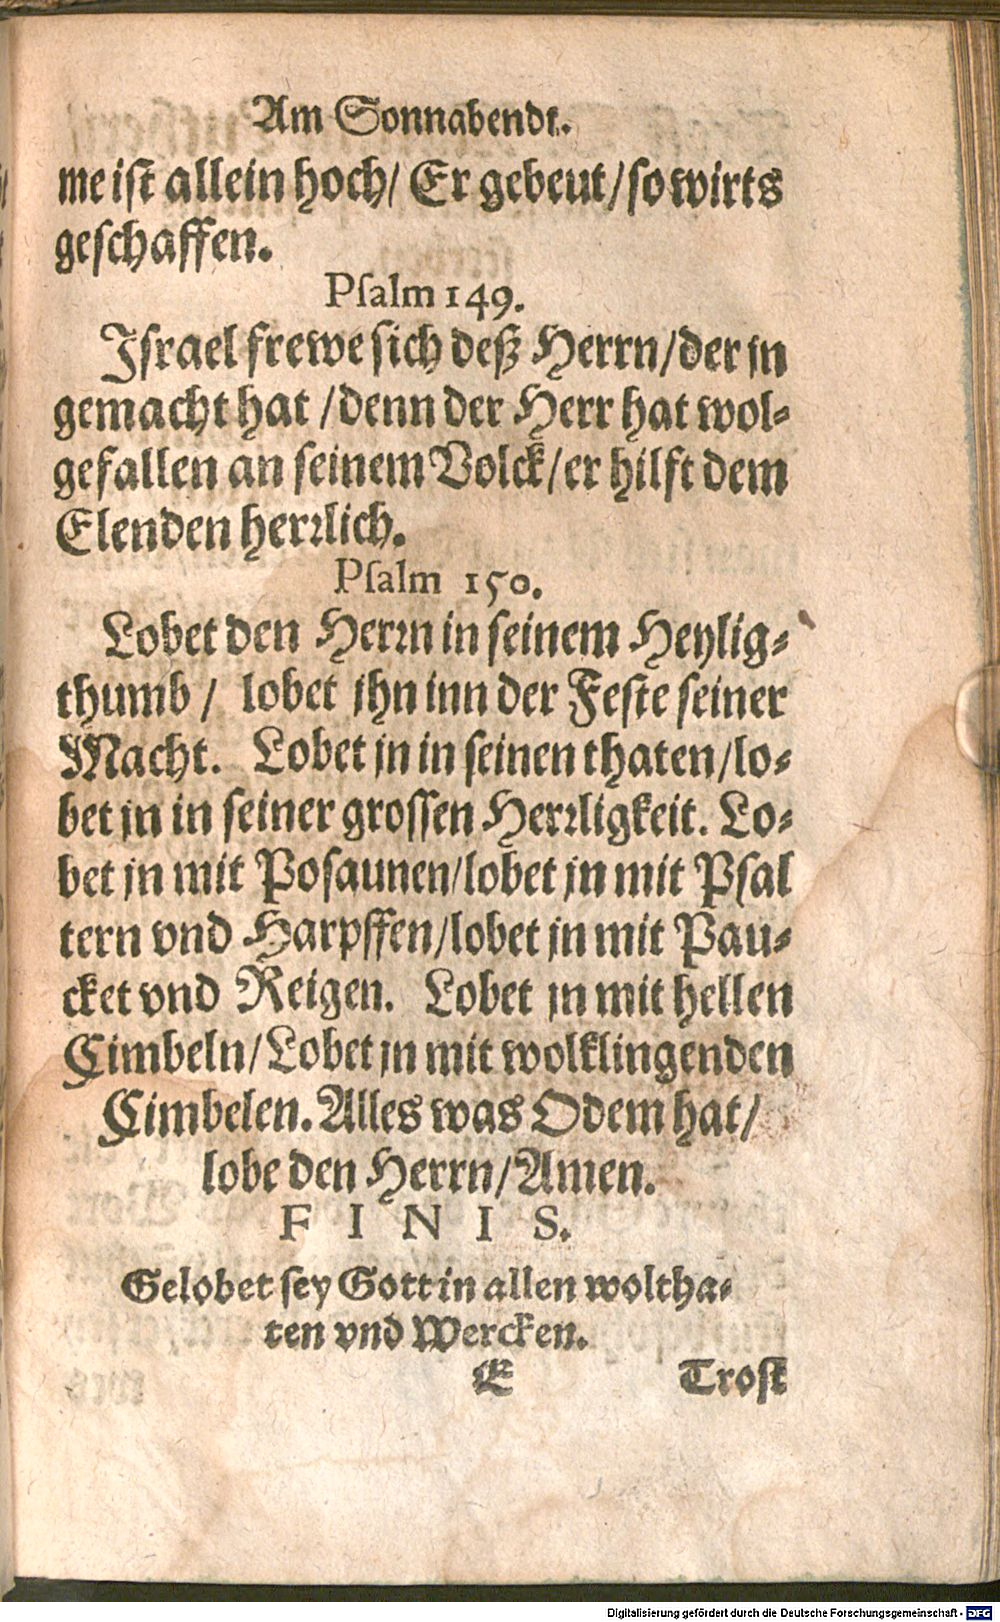 Am Sonnabendt.
me ist allein hoch/ Er gebeut/ so wirts
geschaffen.
Psalm 149.
Israel frewe sich deß Herrn/ der jn
gemacht hat / denn der Herr hat wol⸗
gefallen an seinem Volck/ er hilft dem
Elenden herrlich.
Psalm 150.
Lobet den Herrn in seinem Heylig⸗
thumb / lobet jhn inn der Feste seiner
Macht. Lobet jn in seinen thaten/ lo⸗
bet jn in seiner grossen Herrligkeit. Lo⸗
bet jn mit Posaunen/ lobet jn mit Psal
tern vnd Harpffen/ lobet jn mit Pau⸗
cket vnd Reigen. Lobet jn mit hellen
Cimbeln/ Lobet jn mit wolklingenden
Cimbelen. Alles was Odem hat/
lobe den Herrn/ Amen.
F I N I S.
Gelobet sey Gott in allen woltha⸗
ten vnd Wercken.
E Trost
Digitalisierung gefördert durch die Deutsche Forschungsgemeinschaft - DFG